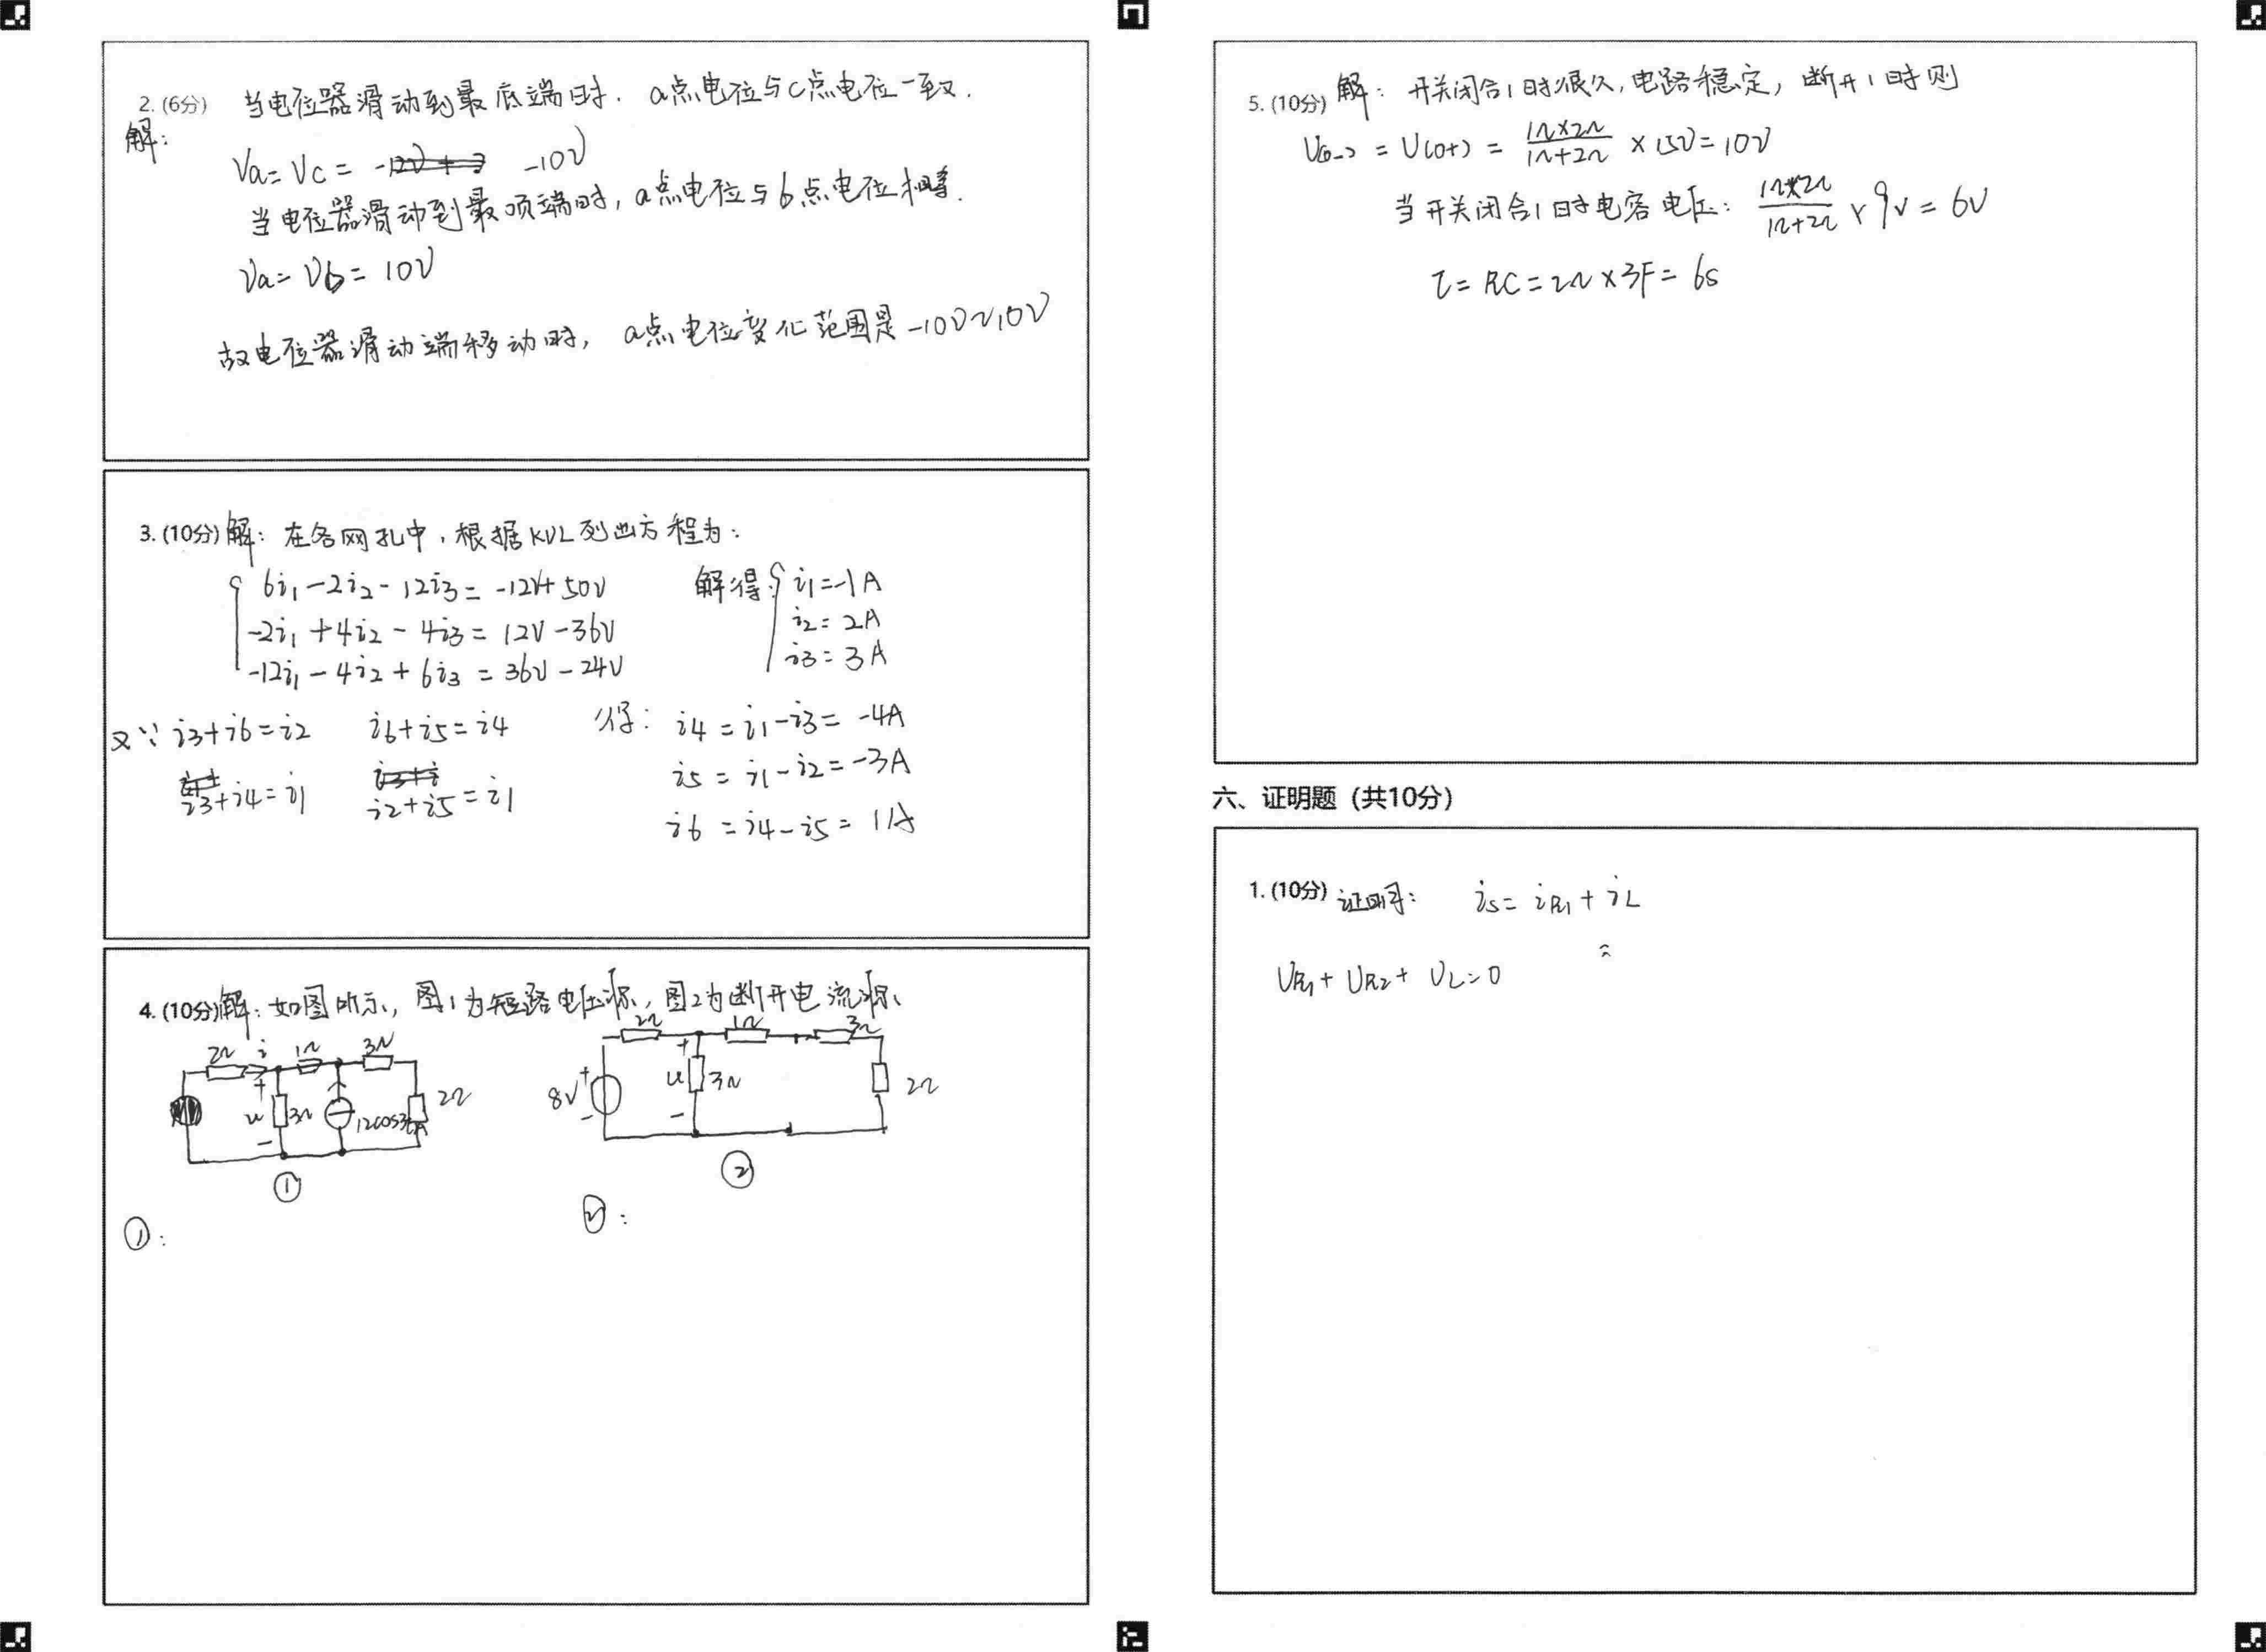 2. (6分) 当电位器滑动到最底端时. a点电位与c点电位一致.
解:
Va = Vc = -10V
当电位器滑动到最顶端时, a点电位与b点电位相等.
Va = Vb = 10V
故电位器滑动端移动时, a点电位变化范围是 -10V~10V
3. (10分) 解: 在各网孔中, 根据KVL列出方程为:
6i1 - 2i2 - 12i3 = -12V + 50V
-2i1 + 4i2 - 4i3 = 12V - 36V
-12i1 - 4i2 + 6i3 = 36V - 24V
解得: i1 = -1A
i2 = 2A
i3 = 3A
又∵ i3 + i6 = i2 i6 + i5 = i4
i3 + i4 = i1 i2 + i5 = i1
得: i4 = i1 - i3 = -4A
i5 = i1 - i2 = -3A
i6 = i4 - i5 = 1A
4. (10分) 解: 如图所示, 图1为短路电压源, 图2为断开电流源.
2Ω i 1Ω 3Ω
+ u - 3Ω 12cos3tA 2Ω
①
2Ω 1Ω 3Ω
8V + - + u - 3Ω 2Ω
②
①:
②:
5. (10分) 解: 开关闭合1时很久, 电路稳定, 断开1时则
U(0-) = U(0+) = 1Ω×2Ω/1Ω+2Ω × 15V = 10V
当开关闭合1时电容电压: 1Ω×2Ω/1Ω+2Ω × 9V = 6V
τ = RC = 2Ω × 3F = 6s
六、证明题 (共10分)
1. (10分) 证明: is = iR1 + iL
=
UR1 + UR2 + UL = 0